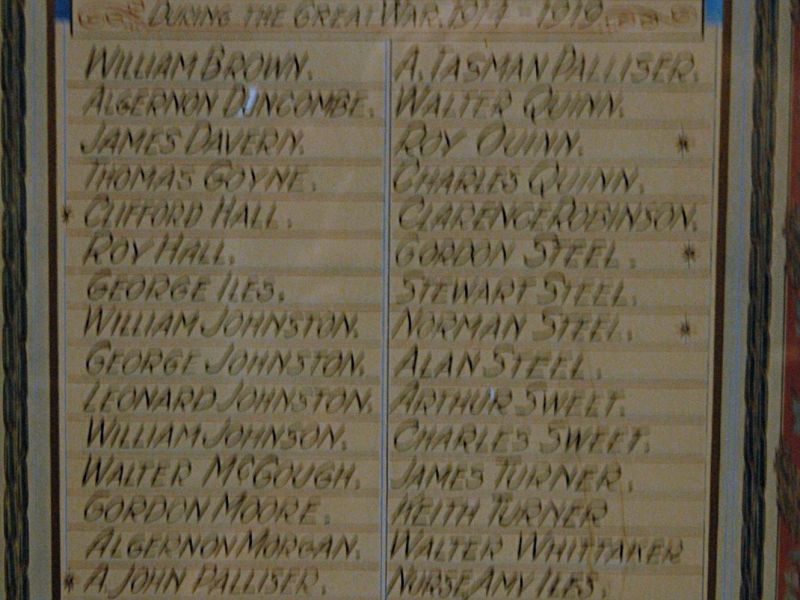 DURING THE GREAT WAR. 1914 - 1919.
WILLIAM BROWN.
ALGERNON DUNCOMBE.
JAMES DAVERN.
THOMAS GOYNE.
* CLIFFORD HALL.
ROY HALL.
GEORGE ILES.
WILLIAM JOHNSTON.
GEORGE JOHNSTON.
LEONARD JOHNSTON.
WILLIAM JOHNSON.
WALTER MCGOUGH.
GORDON MOORE.
ALGERNON MORGAN.
* A. JOHN PALLISER.
A. TASMAN PALLISER.
WALTER QUINN.
ROY QUINN. *
CHARLES QUINN.
CLARENCE ROBINSON.
GORDON STEEL. *
STEWART STEEL.
NORMAN STEEL. *
ALAN STEEL.
ARTHUR SWEET.
CHARLES SWEET.
JAMES TURNER.
KEITH TURNER
WALTER WHITTAKER
NURSE AMY ILES.